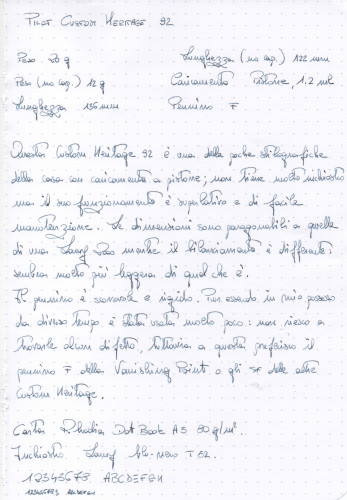 PILOT CUSTOM HERITAGE 92
Peso 20 g Lunghezza (no cap.) 122 mm
Peso (no cap.) 12 g Caricamento Pistone, 1.2 ml
Lunghezza 136 mm Pennino F
Questa Custom Heritage 92 è una delle poche stilografiche
della casa con caricamento a pistone; non tiene molto inchiostro
ma il suo funzionamento è superlativo e di facile
manutenzione. Le dimensioni sono paragonabili a quelle
di una Lamy 2000 mentre il bilanciamento è differente:
sembra molto più leggera di quel che è.
Il pennino è scorrevole e rigido. Pur essendo in mio possesso
da diverso tempo è stata usata molto poco: non riesco a
trovarle alcun difetto, tuttavia a questa preferisco il
pennino F della Vanishing Point o gli SF delle altre
Custom Heritage.
Carta Rhodia Dot Book A5 80 g/m².
Inchiostro Lamy blu-nero T 52.
12345678 ABCDEFGH
12345678 ABCDEFGH